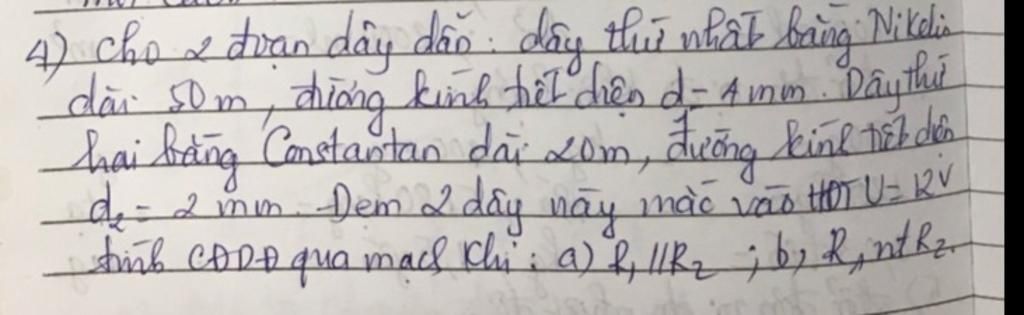 4) Cho 2 đoạn dây dẫn. dây thứ nhất bằng Nikelin
dài 50m, đường kính tiết diện d = 4mm. Dây thứ
hai bằng Constantan dài 20m, đường kính tiết diện
d₂ = 2 mm. Đem 2 dây này mắc vào HĐT U = 12V
tính CĐDĐ qua mạch khi: a) R₁ // R₂ ; b, R₁ nt R₂.